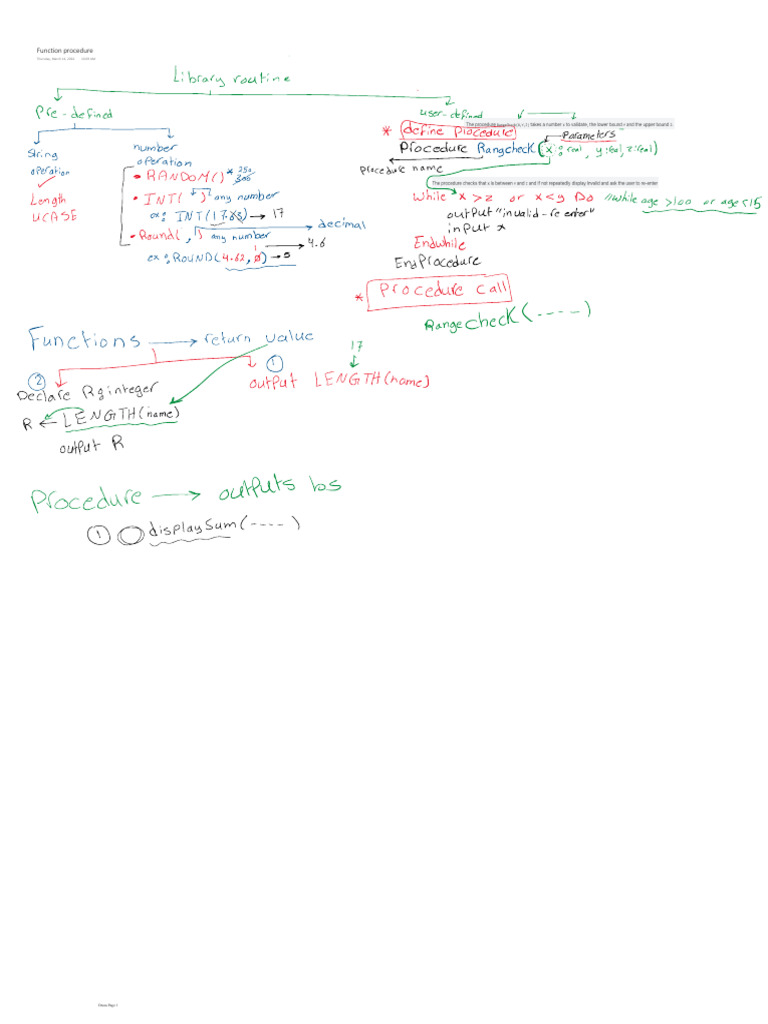 Function procedure
Library routine
Pre-defined
user-defined
string operation
Length
UCASE
number operation
• RANDOM() *
• INT( ) any number
ex: INT(17.85) → 17
• Round( , ) any number
decimal
ex: ROUND(4.62, 0) → 5
1 → 4.6
takes a number x to validate, the lower bound and the upper bound
* define procedure
Parameters
Procedure Rangcheck(x: real, y: real, z: real)
procedure name
The procedure checks that x is between and and if not repeatedly display Invalid and ask the user to re-enter
While x > z or x < y Do // while age > 100 or age < 15
output "invalid-re enter"
input x
Endwhile
EndProcedure
* Procedure call
Rangecheck(----)
Functions → return value
② Declare R: integer
R ← LENGTH(name)
output R
①
17
output LENGTH(name)
Procedure → outputs bs
① displaySum(----)